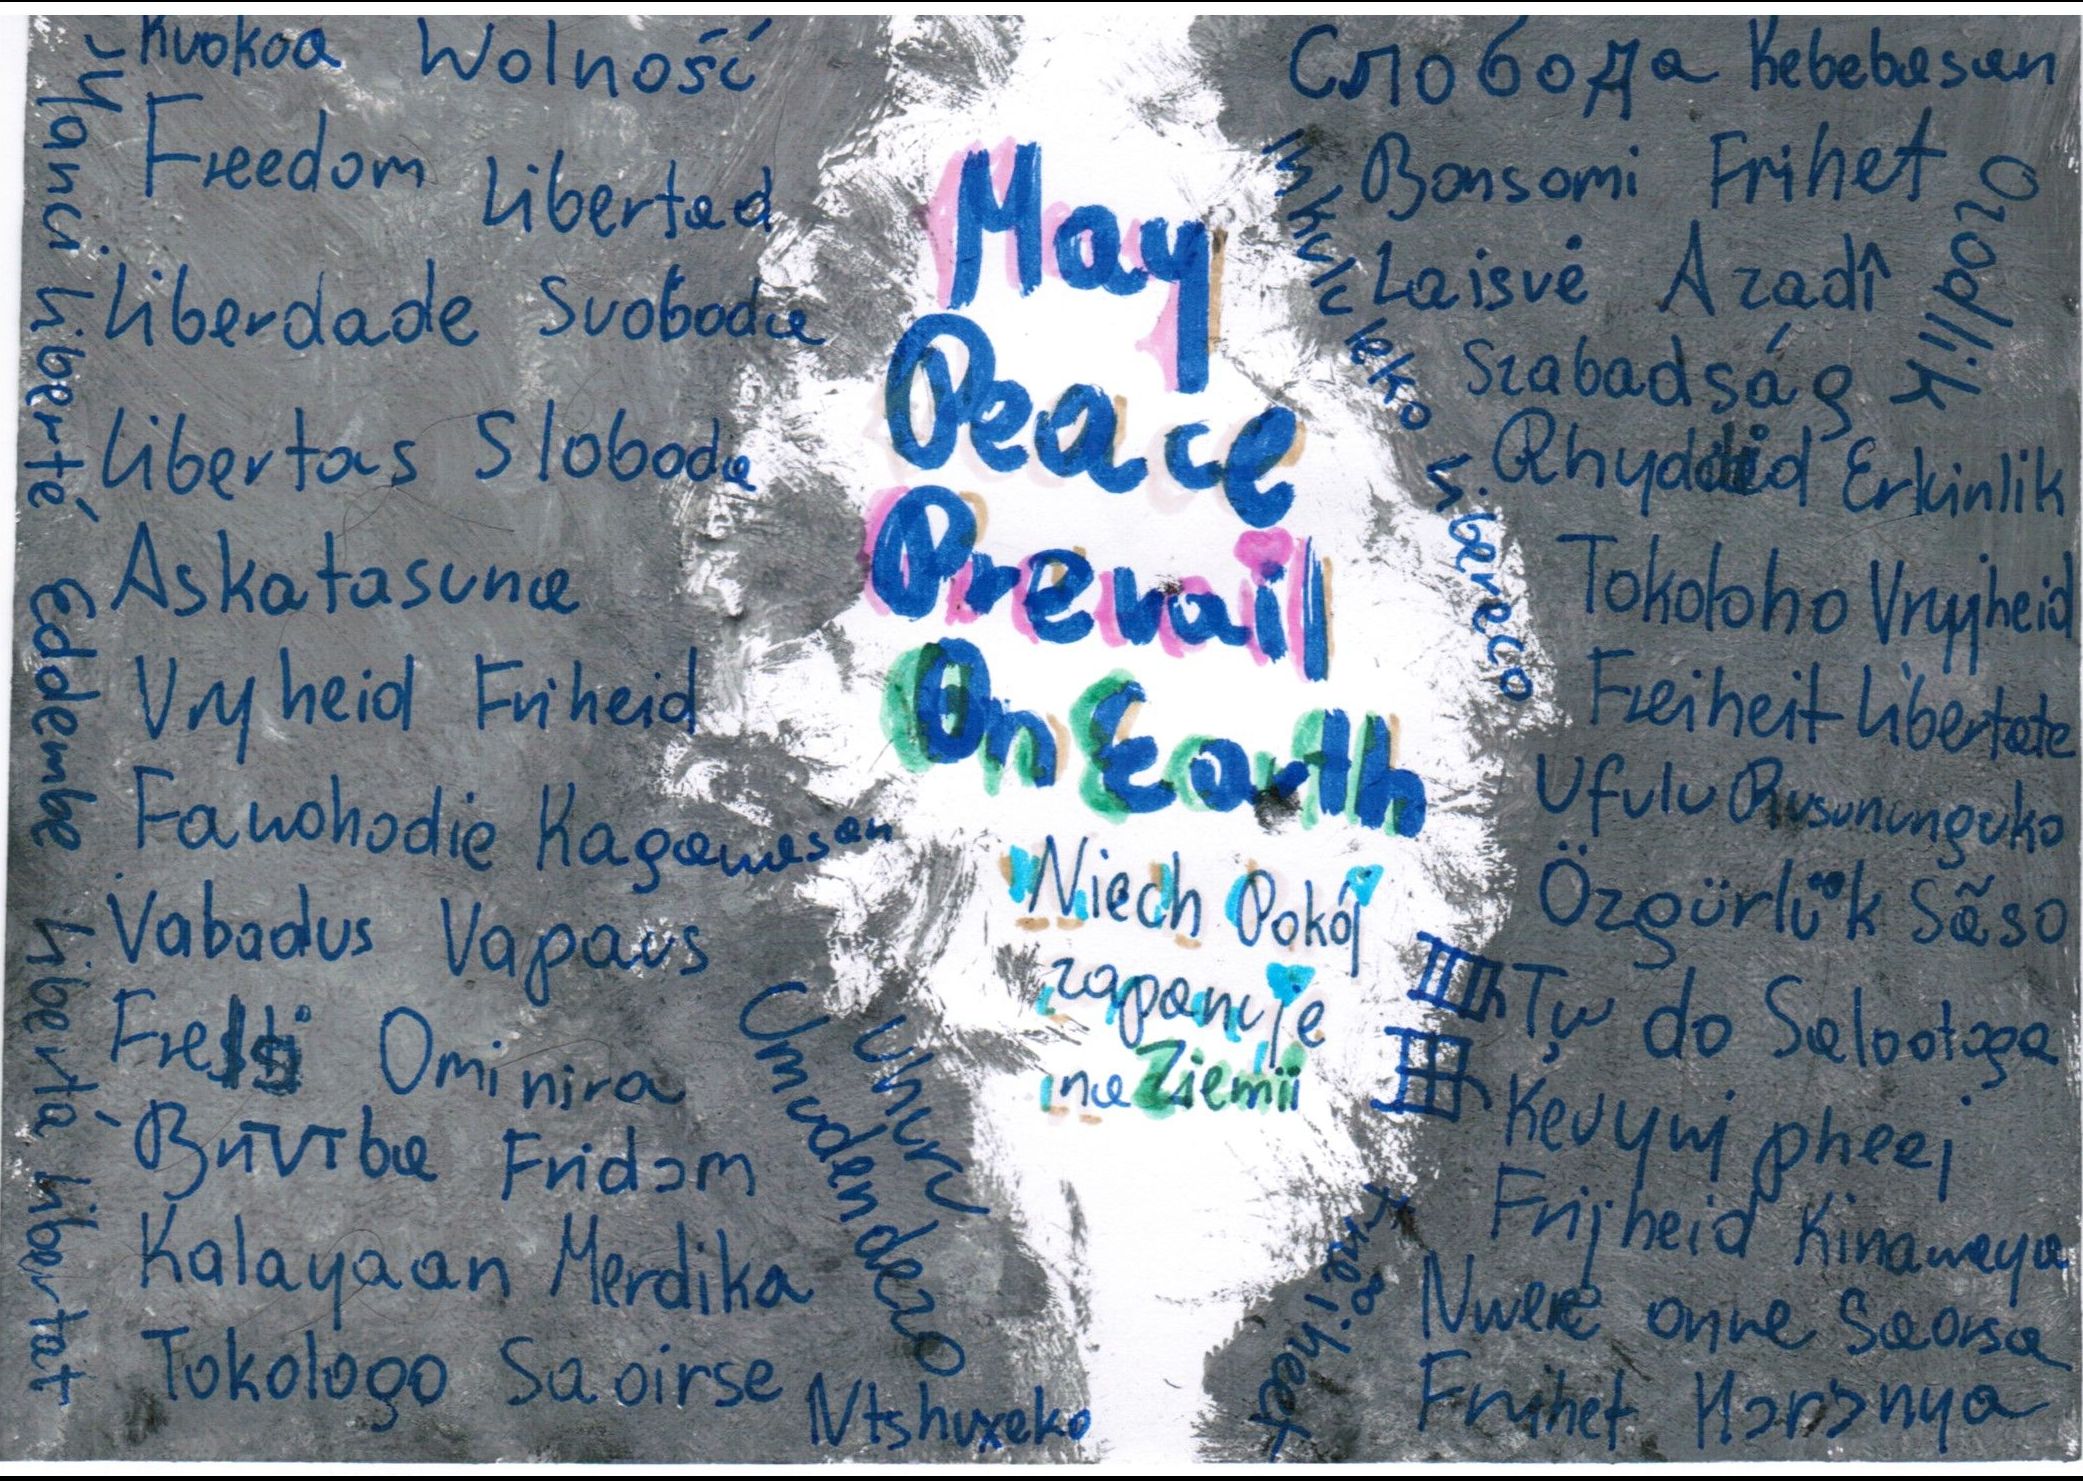 Kuokoa Wolność
Freedom Libertad
Liberdade Svoboda
Libertas Sloboda
Askatasuna
Vryheid Friheid
Fawohodie Kagawasan
Vabadus Vapaus
Frelsi Ominira
Fridɔm
Kalayaan Merdika
Tokologo Saoirse
Ntshuxeko
Ýanci Liberté Eddembe Libertà Llibertat
Uhuru
Umudendezo
May
Peace
Prevail
On Earth
Niech Pokój
zapanuje
na Ziemii
Слобода Kebebasan
Bonsomi Frihet
Ozodlik
Laisvė Azadî
Szabadság
Rhyddid Erkinlik
Inkululeko Libereco
Tokoloho Vryheid
Freiheit Libertate
Ufulu Rusununguko
Özgürlük Sãso
自由
Tự do Salootaga
Kevywj pheej
Frijheid Kinawaya
Nwere onwe Saorsa
Fräiheet
Frihet Hɔrɔnya